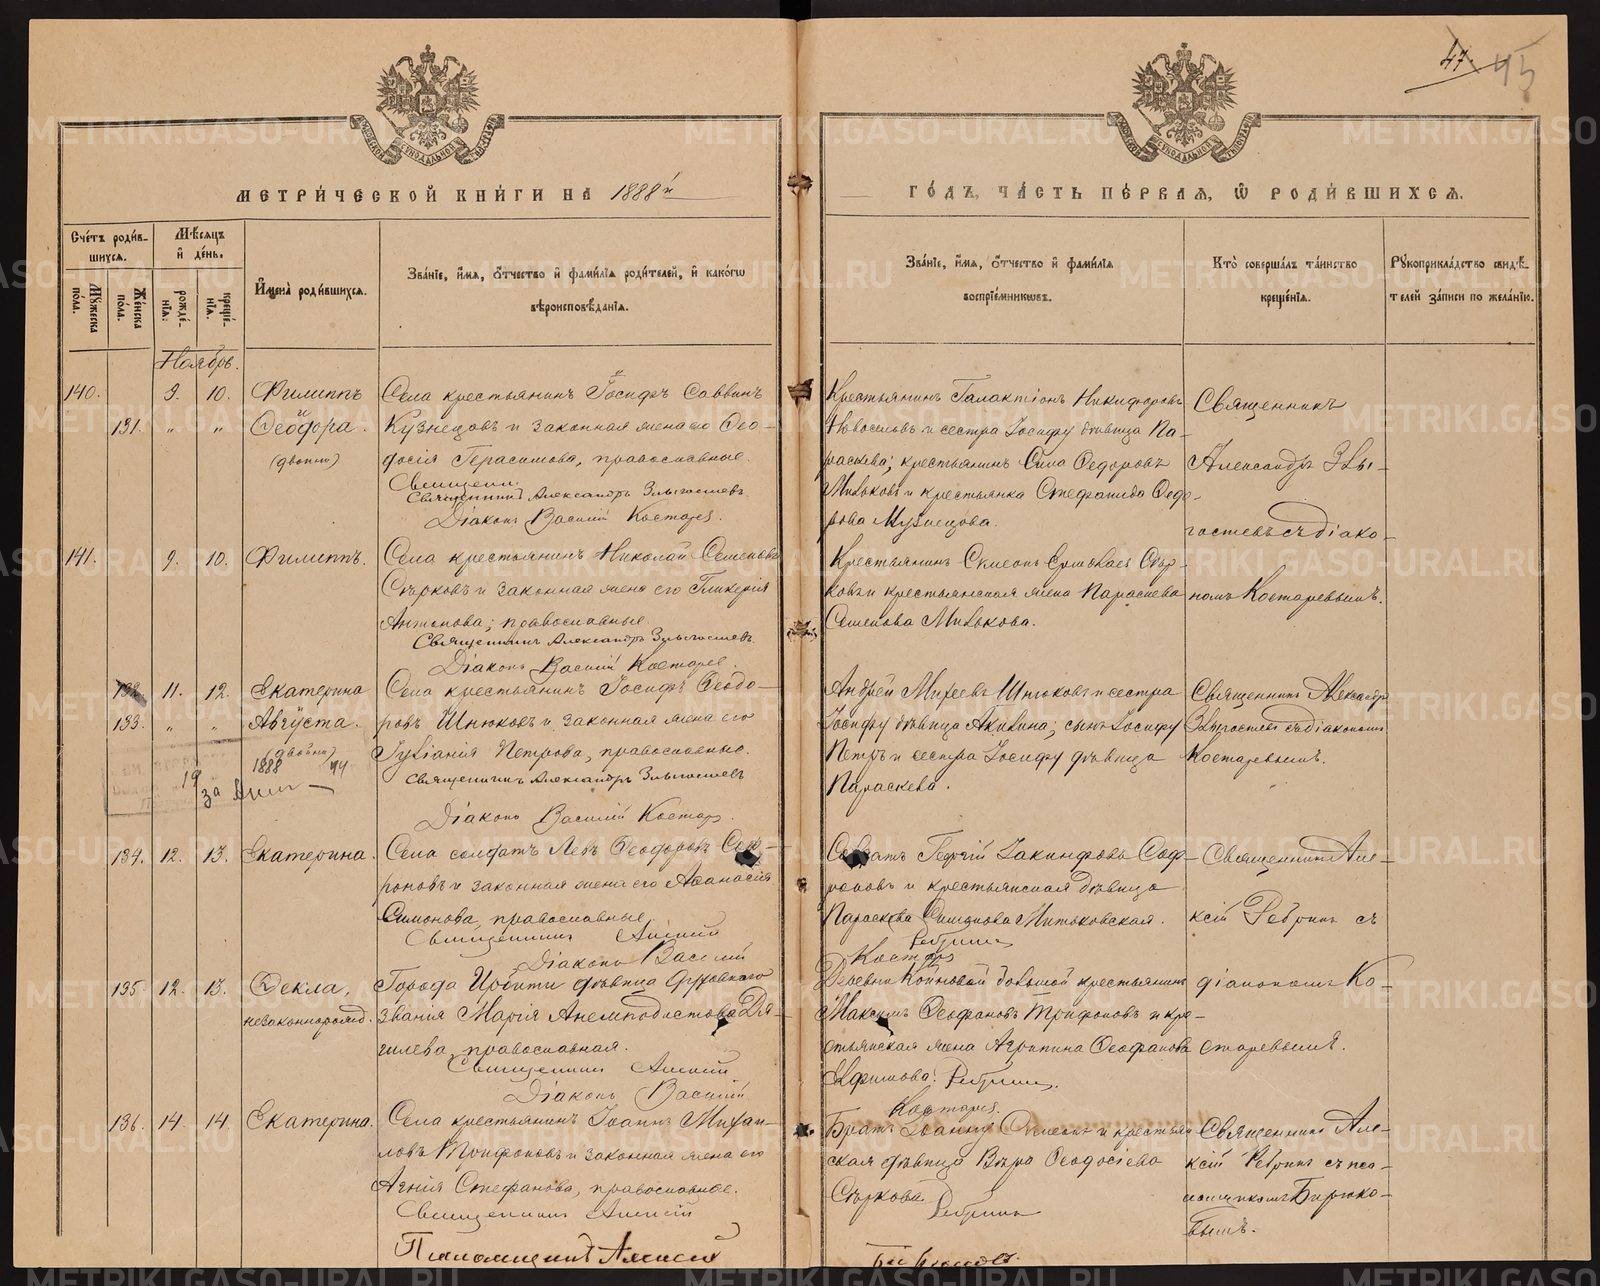 47 45
МЕТРИ́ЧЕСКОЙ КНИ́ГИ НА 1888й
ГО́ДЪ, ЧА́СТЬ ПЕ́РВАЯ, Ѡ РОДИ́ВШИХСЯ.
Сче́тъ роди́в-
шихся.
Мѣ́сяцъ
и҆ де́нь.
Мꙋжеска
по́ла.
Же́нска
по́ла.
рожде́-
нїя:
креще́-
нїя.
И҆мена̀ роди́вшихся.
Зва́нїе, и҆́мя, ѻ҆́тчество и҆ фами́лїя роди́телей, и҆ како́гѡ
вѣроисповѣ́данїя.
Зва́нїе, и҆́мя, ѻ҆́тчество и҆ фами́лїя
воспрїе́мникѡвъ.
Кто̀ соверша́лъ та́инство
креще́нїя.
Рꙋкоприкла́дство свидѣ́-
телей за́писи по жела́нїю.
Ноябрь.
140. 9. 10. Филиппъ
131. " " Ѳеодора.
(двойни)
Села крестьянинъ Іосифъ Саввинъ
Кузнецовъ и законная жена его Ѳео-
досія Герасимова, православные.
Священни
Священникъ Александръ Злыгостевъ
Діаконъ Василій Костаревъ.
Крестьянинъ Галактіонъ Никифоровъ
Новоселовъ и сестра Іосифу дѣвица Па-
раскева; крестьянинъ Сила Ѳедоровъ
Мильковъ и крестьянка Стефанида Ѳедо-
рова Кузнецова.
Священникъ
Александръ Злы-
гостевъ съ діако-
номъ Костаревымъ.
141. 9. 10. Филиппъ.
Села крестьянинъ Николай Семеновъ
Сѣрковъ и законная жена его Гликерія
Антонова; православные.
Священникъ Александръ Злыгостевъ
Діаконъ Василій Костарев.
Крестьянинъ Сѣр-
ковъ и крестьянская жена Параскева
Семенова Милькова.
132. 11. 12. Екатерина
133. " " Августа.
(двойни)
1888
Села крестьянинъ Іосифъ Ѳеодо-
ровъ Шнюковъ и законная жена его
Іуліанія Петрова, православные.
Священникъ Александръ Злыгостевъ
Діаконъ Василій Костарев.
Андрей Михеевъ Шнюковъ и сестра
Іосифу дѣвица Акилина; сынъ Іосифу
Петръ и сестра Іосифу дѣвица
Параскева.
Священникъ Александръ
Злыгостевъ съ діакономъ
Костаревымъ.
134. 12. 13. Екатерина.
Села солдатъ Левъ Ѳеодоровъ Соф-
роновъ и законная жена его Аѳанасія
Симонова, православные.
Священникъ Алексій Ребринъ
Діаконъ Василій Костарев
Солдатъ Георгій Іакинфовъ Соф-
роновъ и крестьянская дѣвица
Параскева Симонова
Священникъ Але-
ксій Ребринъ съ
діакономъ Ко-
старевымъ.
135. 12. 13. Ѳекла,
незаконнорожд.
Города Ирбити дѣвица духовнаго
званія Марія Анемподистова Дя-
гилева, православная.
Священникъ Алексій Ребринъ.
Діаконъ Василій Костарев.
Деревни большой крестьянинъ
Максимъ Ѳеофановъ Трифоновъ и кре-
стьянская жена Агрипина Ѳеофанова
Ефимова.
136. 14. 14. Екатерина.
Села крестьянинъ Іоаннъ Михаи-
ловъ Трифоновъ и законная жена его
Агнія Стефанова, православные.
Священникъ Алексій Ребринъ
Псаломщикъ Алексій Бирюковъ.
Братъ Іоанну и крестьян-
ская дѣвица Вѣра Ѳеодосіева
Сѣркова.
Священникъ Але-
ксій Ребринъ съ пса-
ломщикомъ Бирюко-
вымъ.
METRIKI.GASO-URAL.RU